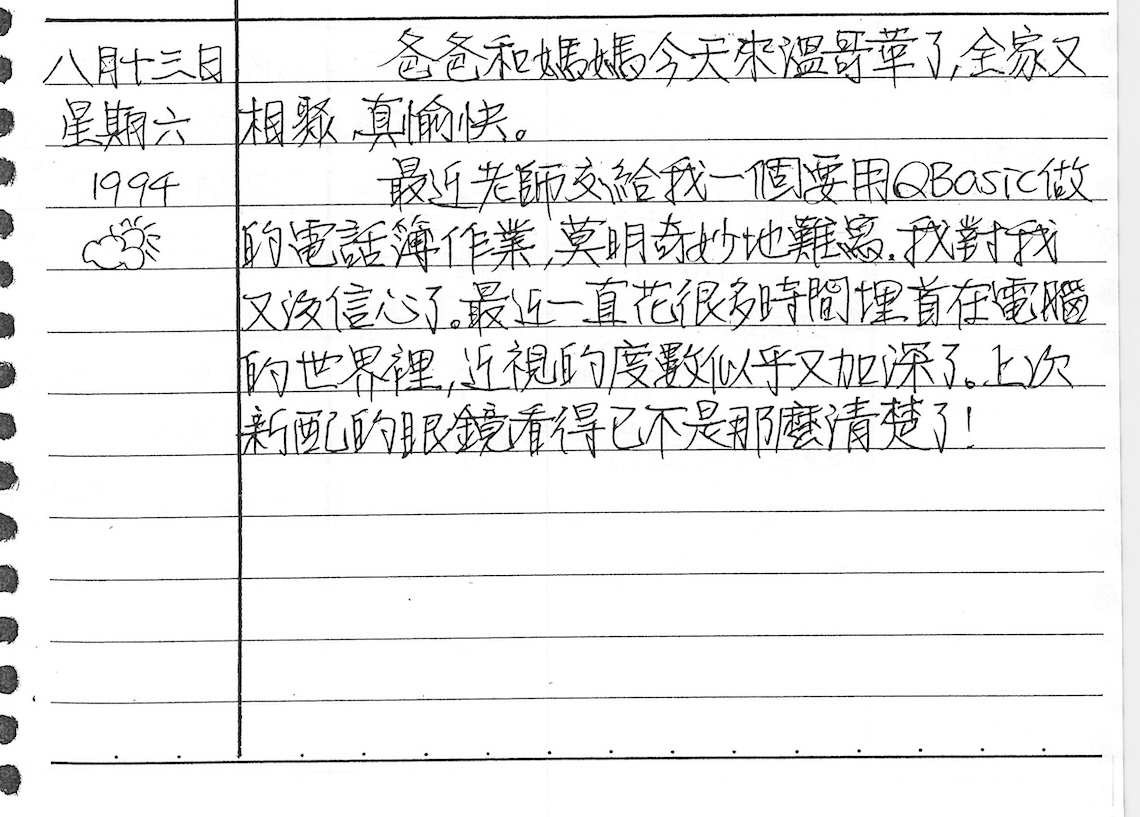 八月十三日
星期六
1994
爸爸和媽媽今天來溫哥華了,全家又
相聚、真愉快。
最近老師交給我一個要用QBasic做
的電話簿作業,莫明奇妙地難寫.我對我
又沒信心了。最近一直花很多時間埋首在電腦
的世界裡,近視的度數似乎又加深了。上次
新配的眼鏡看得已不是那麼清楚了!